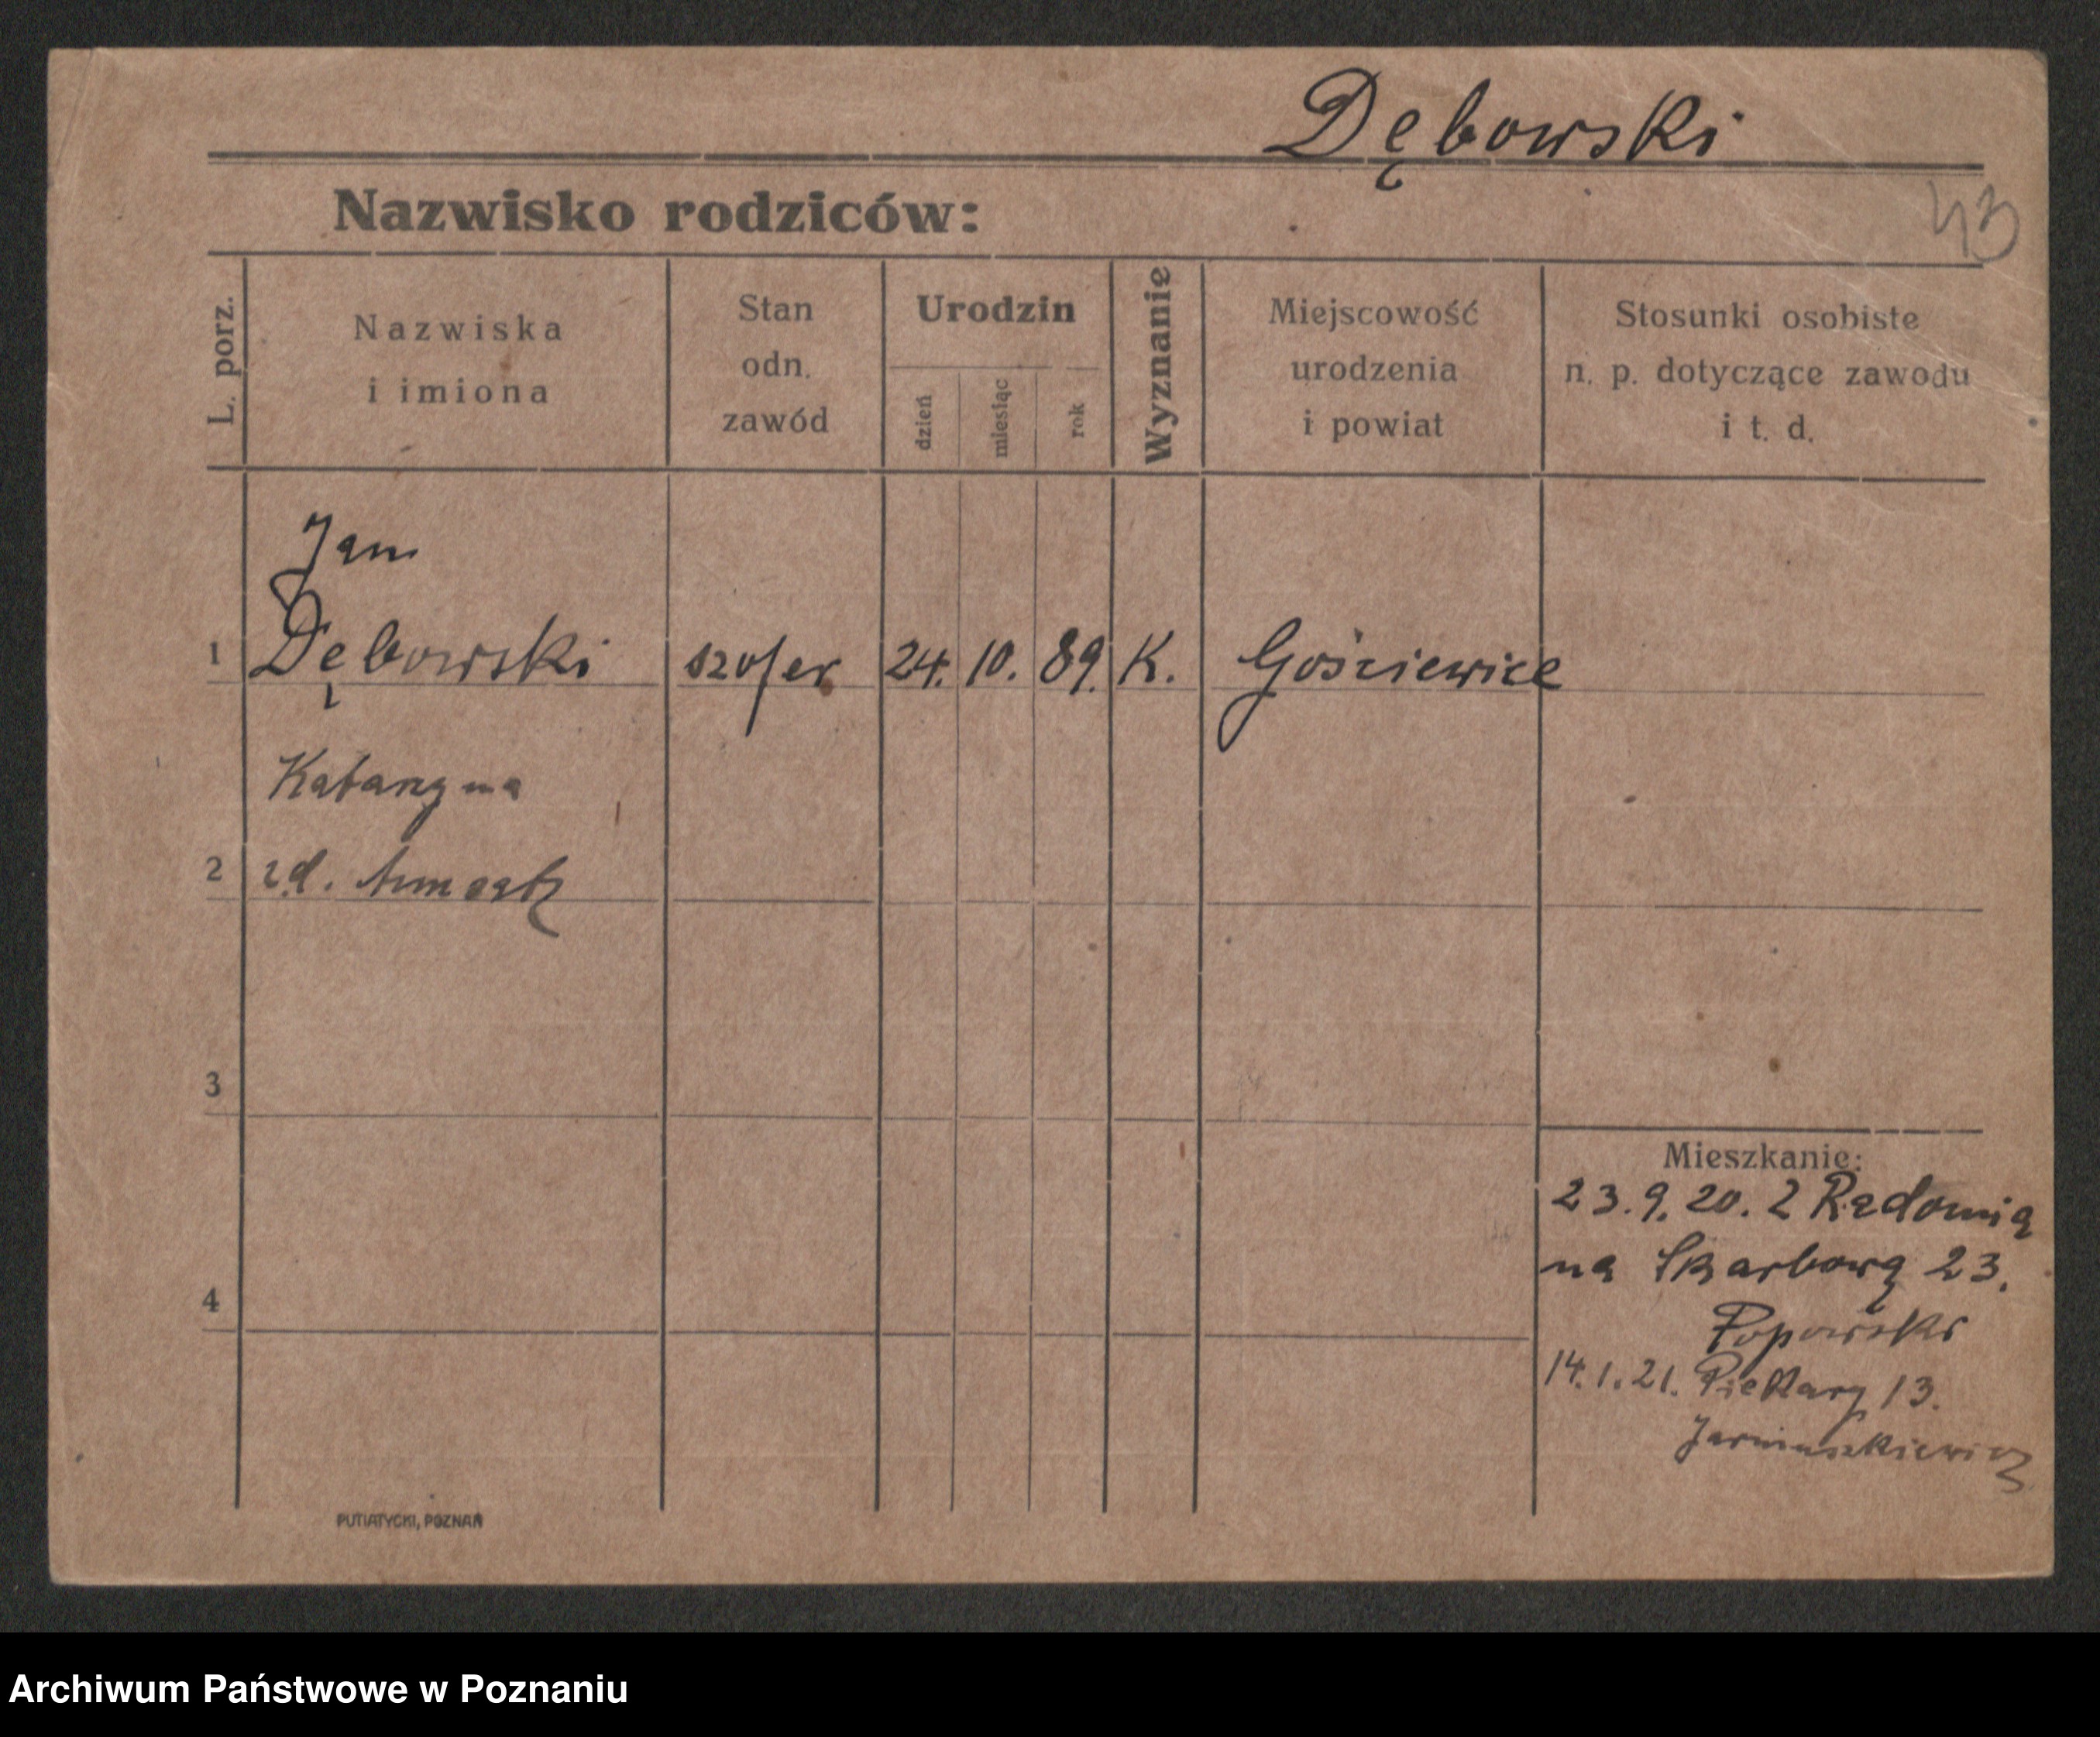 Dębowski
Nazwisko rodziców:
43
L. porz.
Nazwiska
i imiona
Stan
odn.
zawód
Urodzin
dzień
miesiąc
rok
Wyznanie
Miejscowość
urodzenia
i powiat
Stosunki osobiste
n. p. dotyczące zawodu
i t. d.
Jan
1 Dębowski szofer 24. 10. 89. K. Gościewice
Katarzyna
2 zd.
3
4
Mieszkanie:
23.9.20. Z Radomia
na Skarbową 23.
Popowski
14.1.21. Piekary 13.
PUTIATYCKI, POZNAŃ
Archiwum Państwowe w Poznaniu